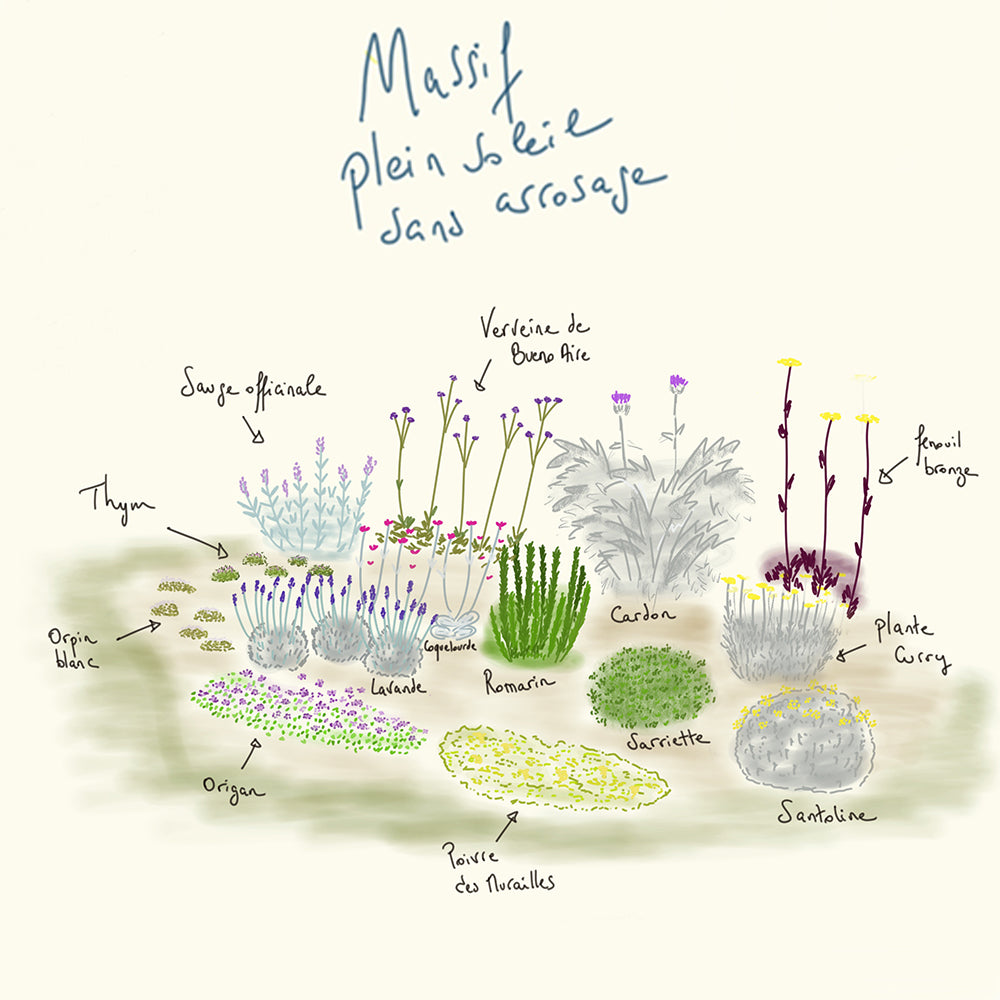 Massif
plein soleil
sans arrosage
Verveine de
Bueno Aire
Sauge officinale
fenouil
bronze
Thym
Cardon
Orpin
blanc
plante
Curry
Coquelourde
Lavande
Romarin
Sarriette
Origan
Santoline
Poivre
des Murailles